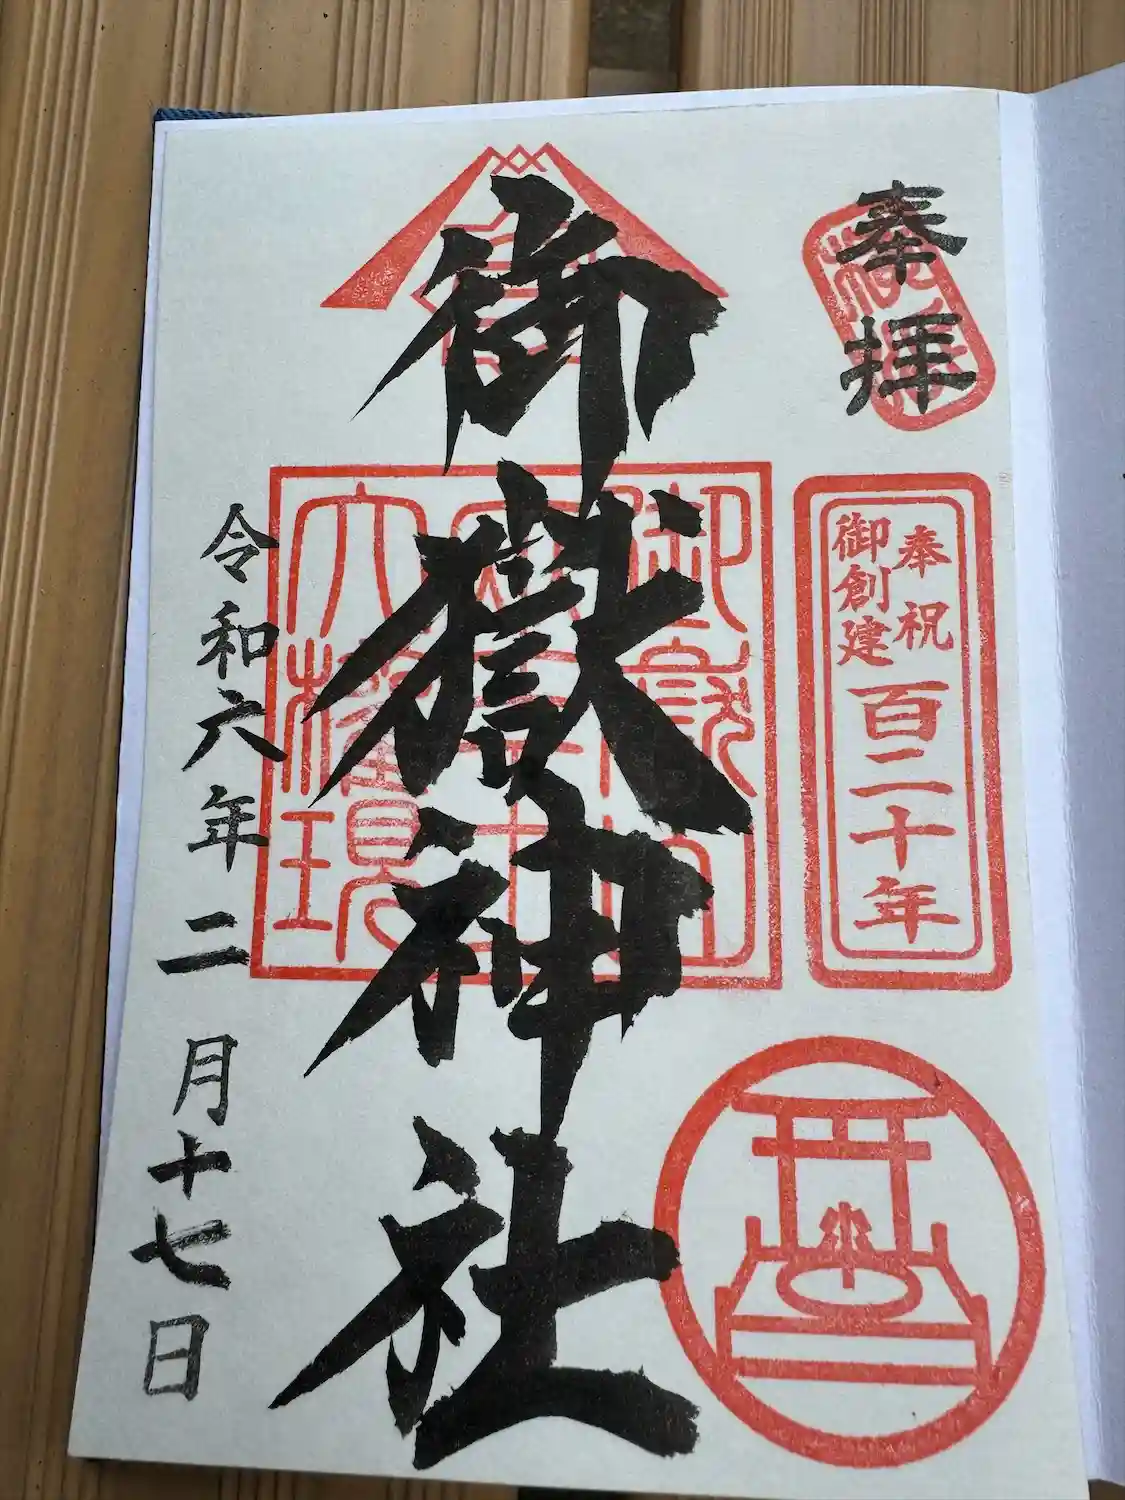 奉拝
奉祝
御創建
百二十年
御嶽神社
令和六年二月十七日